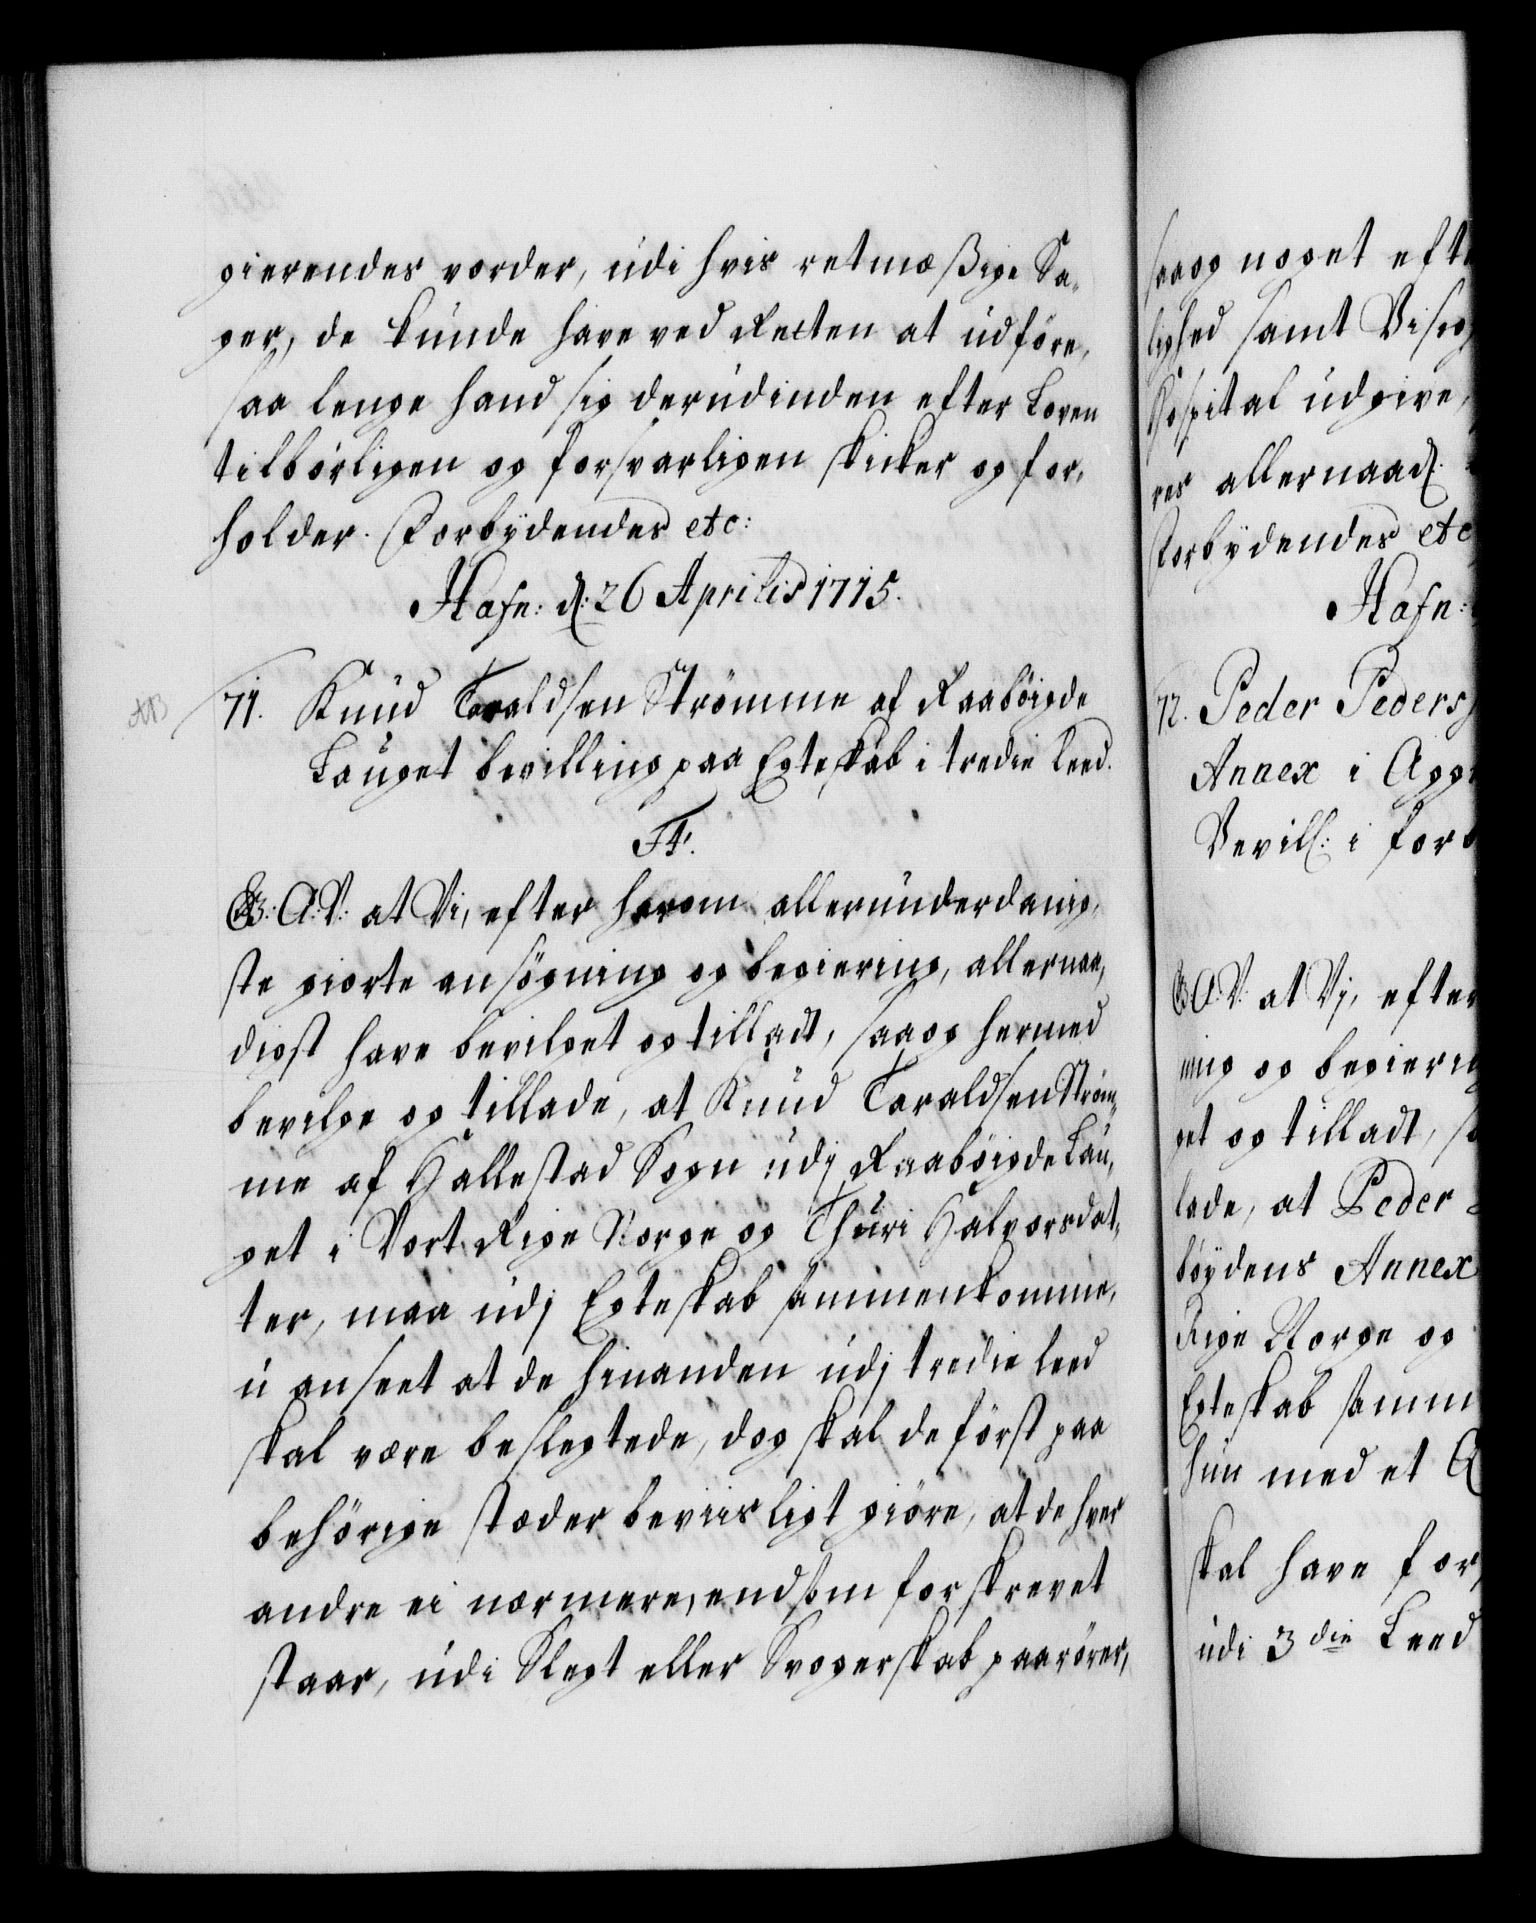 gierendes vorder, udi hvis retmæßige Sa-
ger, de kunde have ved Retten at udføre,
saa lenge hand sig derudinden efter Loven
tilbørligen og forsvarligen skicker og for-
holder. Forbydendes etc:
Hafn: d: 26 Aprilis 1715.
71. Knud Taraldsen Strømme af Raabøigde
Lauget bevilling paa Egteskab i tredie leed.
F4.
G: A: V: at Vi, efter herom allerunderdanig-
ste giorte ansøgning og begiering, allernaa-
digst have bevilget og tilladt, saa og hermed
bevilge og tillade, at Knud Taraldsen Strøm-
me af Hallestad Sogn udj Raabøigde Lau-
get i Vort Rige Norge og Thuri Halvorsdat-
ter, maa udj Egteskab sammenkomme,
u anseet at de hinanden udj tredie leed
skal være beslegtede, dog skal de først paa
behørige stæder beviisligt giøre, at de hver
andre ei nærmere, end som forskrevet
staar, udi Slegt eller Svogerskab paarører,
saa og noget eft
lighed samt Viseg
Hospital udgive,
res allernaad:
Forbydendes etc
Hafn:
72. Peder Peders
Annex i Agge
Bevill: i for
G: A: V: at Vj, efter
ning og begiering
get og tilladt, sa
lade, at Peder
bøydens Annex
Rige Norge og
Egteskab samm
hun med et A
skal have for
udi 3die Leed